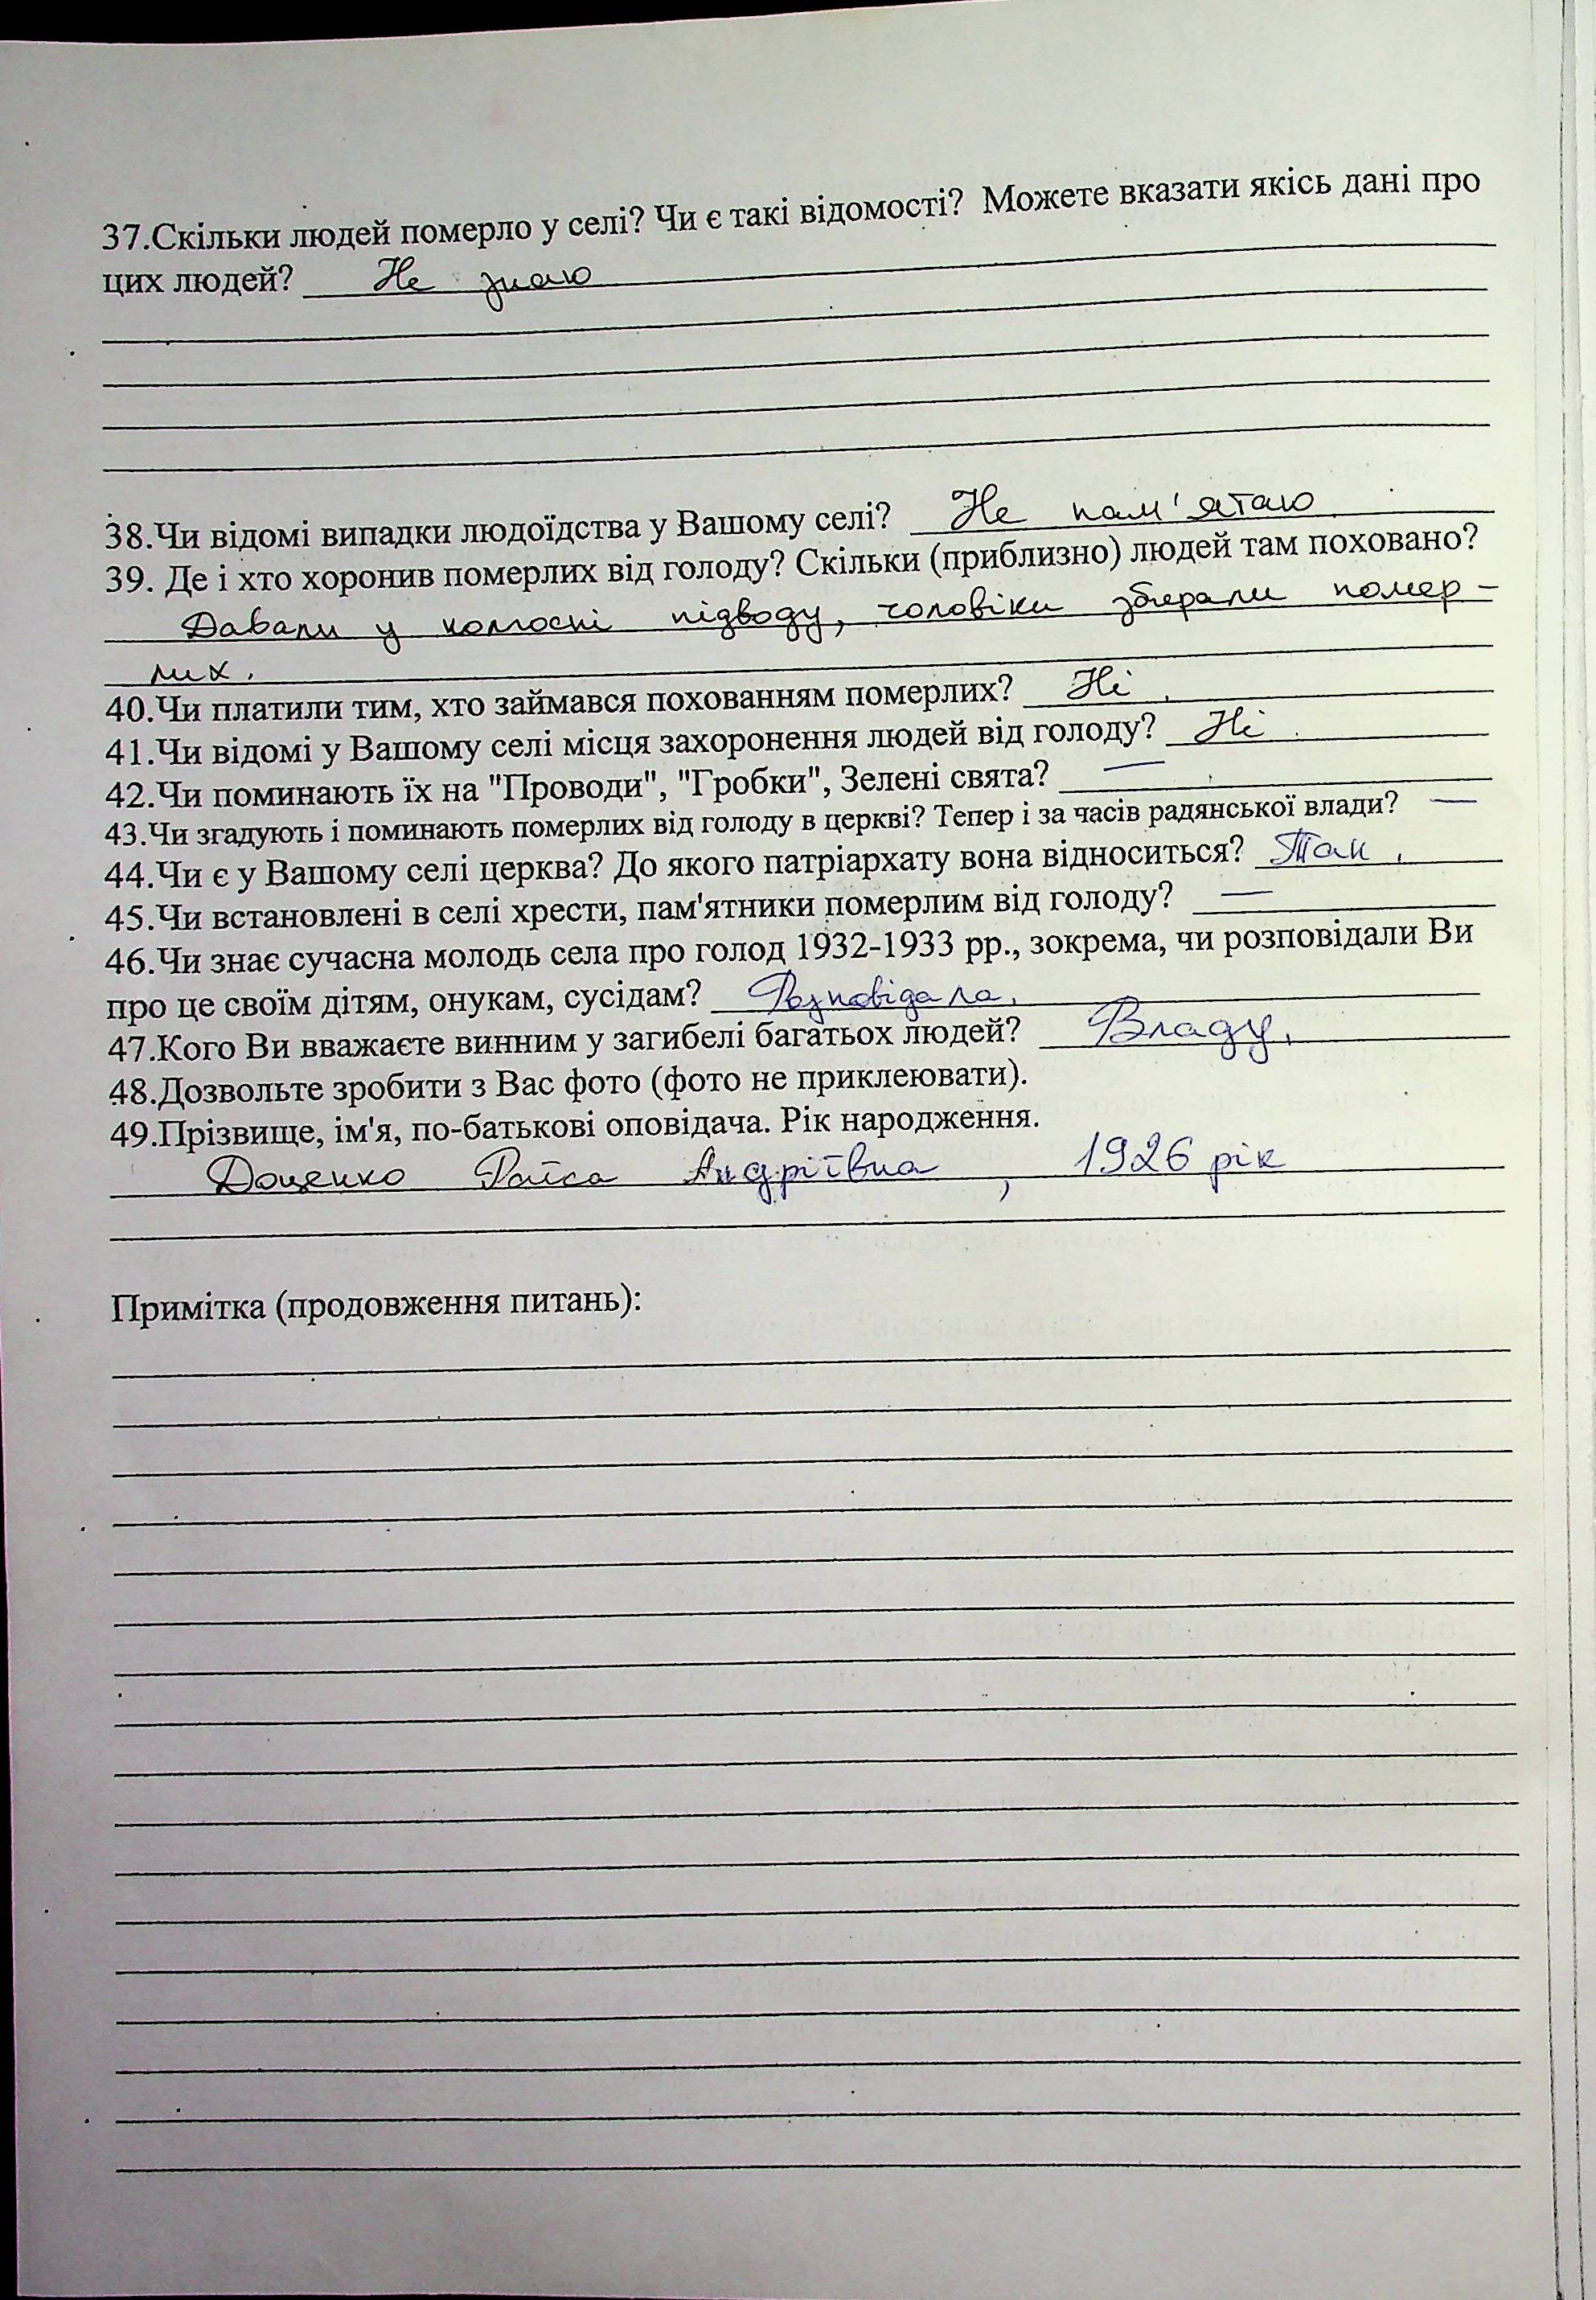 37.Скільки людей померло у селі? Чи є такі відомості? Можете вказати якісь дані про
цих людей? Не знаю
38.Чи відомі випадки людоїдства у Вашому селі? Не пам'ятаю
39. Де і хто хоронив померлих від голоду? Скільки (приблизно) людей там поховано?
Давали у колгоспі підводу, чоловіки збирали помер-
лих.
40.Чи платили тим, хто займався похованням померлих? Ні.
41.Чи відомі у Вашому селі місця захоронення людей від голоду? Ні.
42.Чи поминають їх на "Проводи", "Гробки", Зелені свята? —
43.Чи згадують і поминають померлих від голоду в церкві? Тепер і за часів радянської влади? —
44.Чи є у Вашому селі церква? До якого патріархату вона відноситься? Так.
45.Чи встановлені в селі хрести, пам'ятники померлим від голоду? —
46.Чи знає сучасна молодь села про голод 1932-1933 рр., зокрема, чи розповідали Ви
про це своїм дітям, онукам, сусідам? Розповідала.
47.Кого Ви вважаєте винним у загибелі багатьох людей? Владу.
48.Дозвольте зробити з Вас фото (фото не приклеювати).
49.Прізвище, ім'я, по-батькові оповідача. Рік народження.
Доценко Раїса Андріївна, 1926 рік
Примітка (продовження питань):